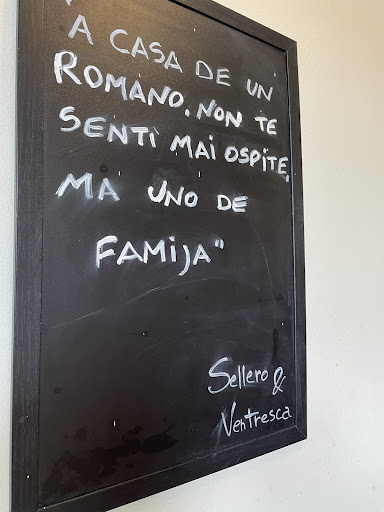 "A CASA DE UN
ROMANO. NON TE
SENTI MAI OSPITE,
MA UNO DE
FAMIJA"
Sellero &
Ventresca